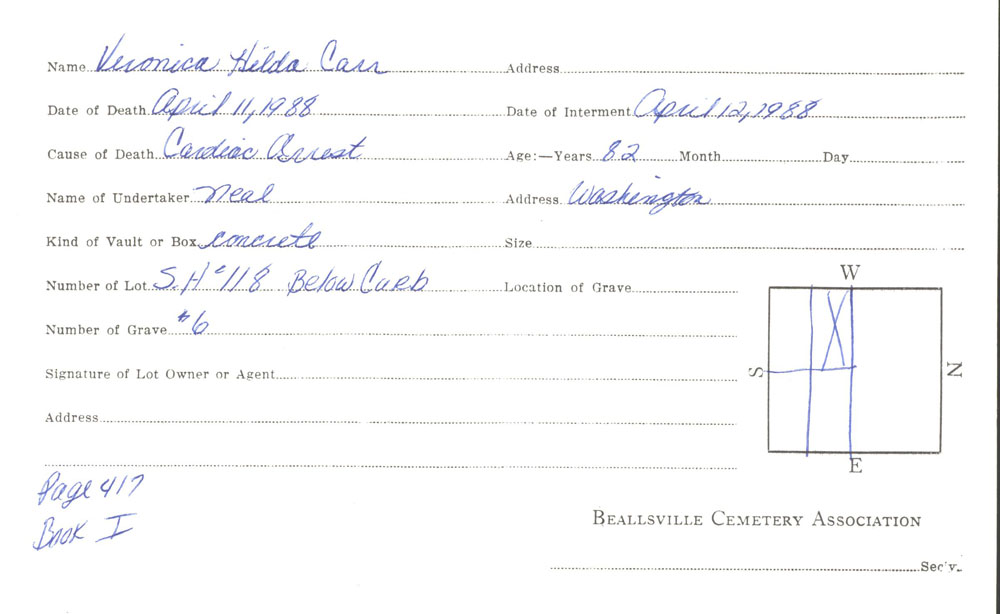 Name Veronica Hilda Carr Address
Date of Death April 11, 1988 Date of Interment April 12, 1988
Cause of Death Cardiac Arrest Age:—Years 82 Month Day
Name of Undertaker Neal Address Washington
Kind of Vault or Box concrete Size
Number of Lot S.H # 118 Below Curb Location of Grave
W
Number of Grave #6
S N
Signature of Lot Owner or Agent
Address
E
Page 417
Book I
BEALLSVILLE CEMETERY ASSOCIATION
Sec'y.